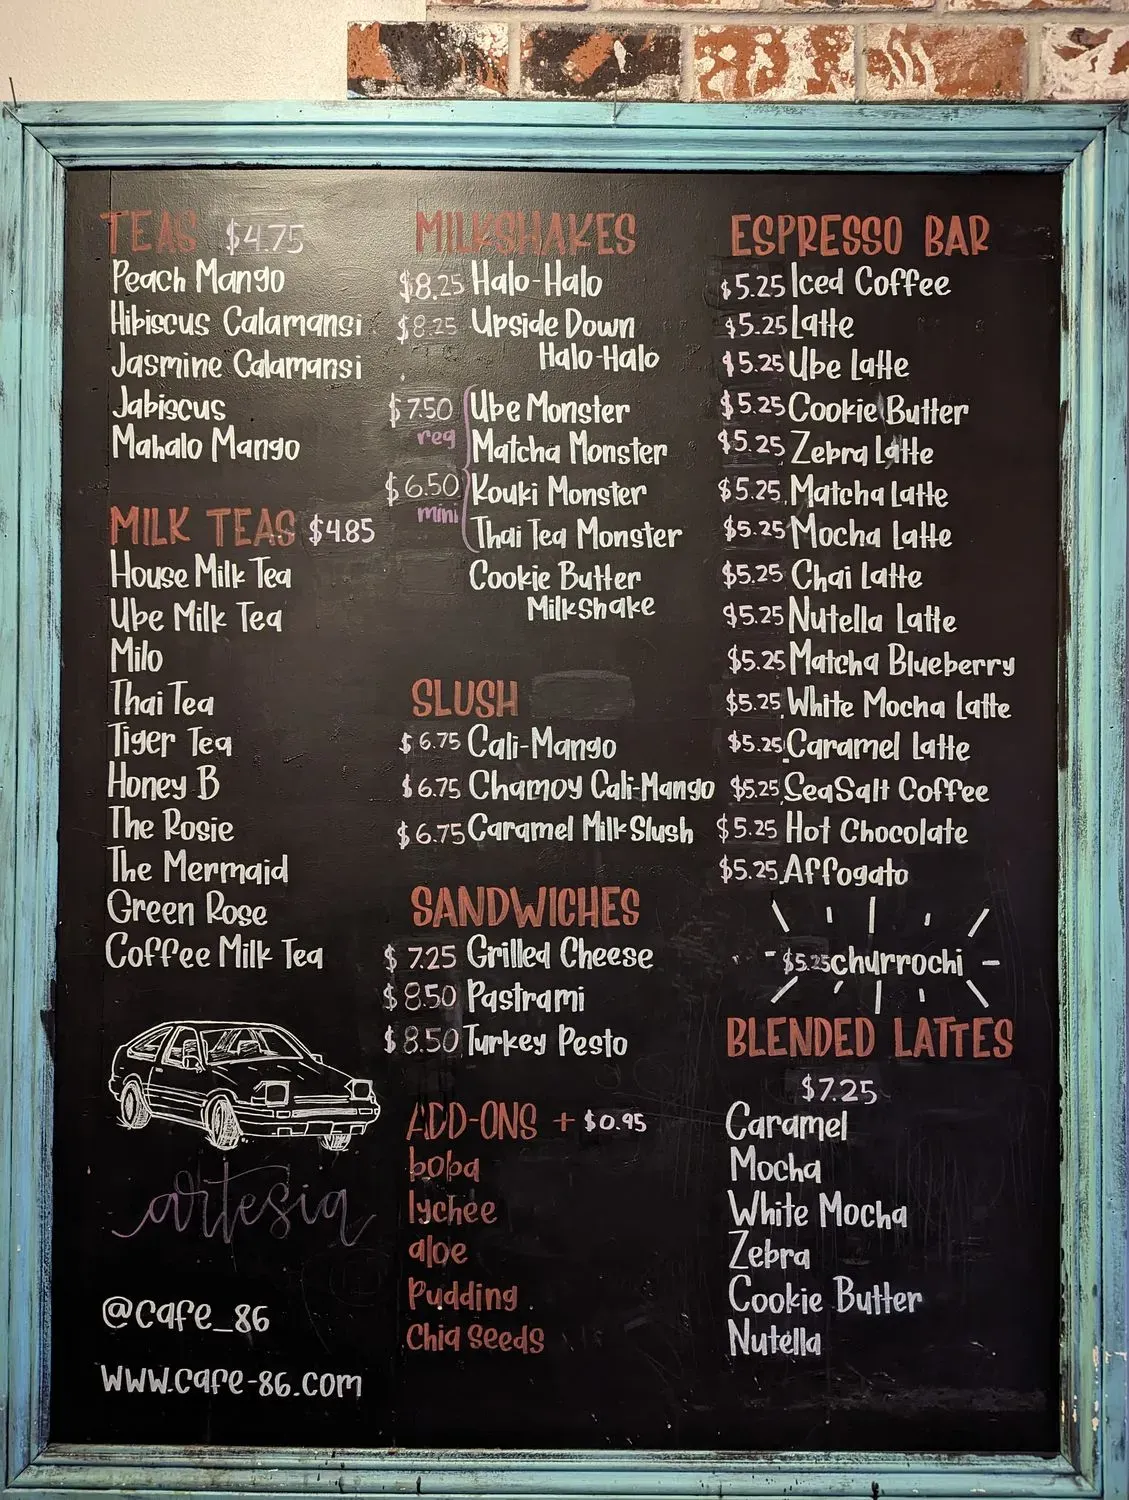 TEAS $4.75
Peach Mango
Hibiscus Calamansi
Jasmine Calamansi
Jabiscus
Mahalo Mango
MILK TEAS $4.85
House Milk Tea
Ube Milk Tea
Milo
Thai Tea
Tiger Tea
Honey B
The Rosie
The Mermaid
Green Rose
Coffee Milk Tea
artesia
@cafe_86
www.cafe-86.com
MILKSHAKES
$8.25 Halo-Halo
$8.25 Upside Down
Halo-Halo
$7.50 Ube Monster
reg Matcha Monster
$6.50 Kouki Monster
mini Thai Tea Monster
Cookie Butter
Milkshake
SLUSH
$6.75 Cali-Mango
$6.75 Chamoy Cali-Mango
$6.75 Caramel Milk Slush
SANDWICHES
$7.25 Grilled Cheese
$8.50 Pastrami
$8.50 Turkey Pesto
ADD-ONS + $0.95
boba
lychee
aloe
Pudding
Chia Seeds
ESPRESSO BAR
$5.25 Iced Coffee
$5.25 Latte
$5.25 Ube Latte
$5.25 Cookie Butter
$5.25 Zebra Latte
$5.25 Matcha Latte
$5.25 Mocha Latte
$5.25 Chai Latte
$5.25 Nutella Latte
$5.25 Matcha Blueberry
$5.25 White Mocha Latte
$5.25 Caramel Latte
$5.25 SeaSalt Coffee
$5.25 Hot Chocolate
$5.25 Affogato
$5.25 churrochi
BLENDED LATTES
$7.25
Caramel
Mocha
White Mocha
Zebra
Cookie Butter
Nutella